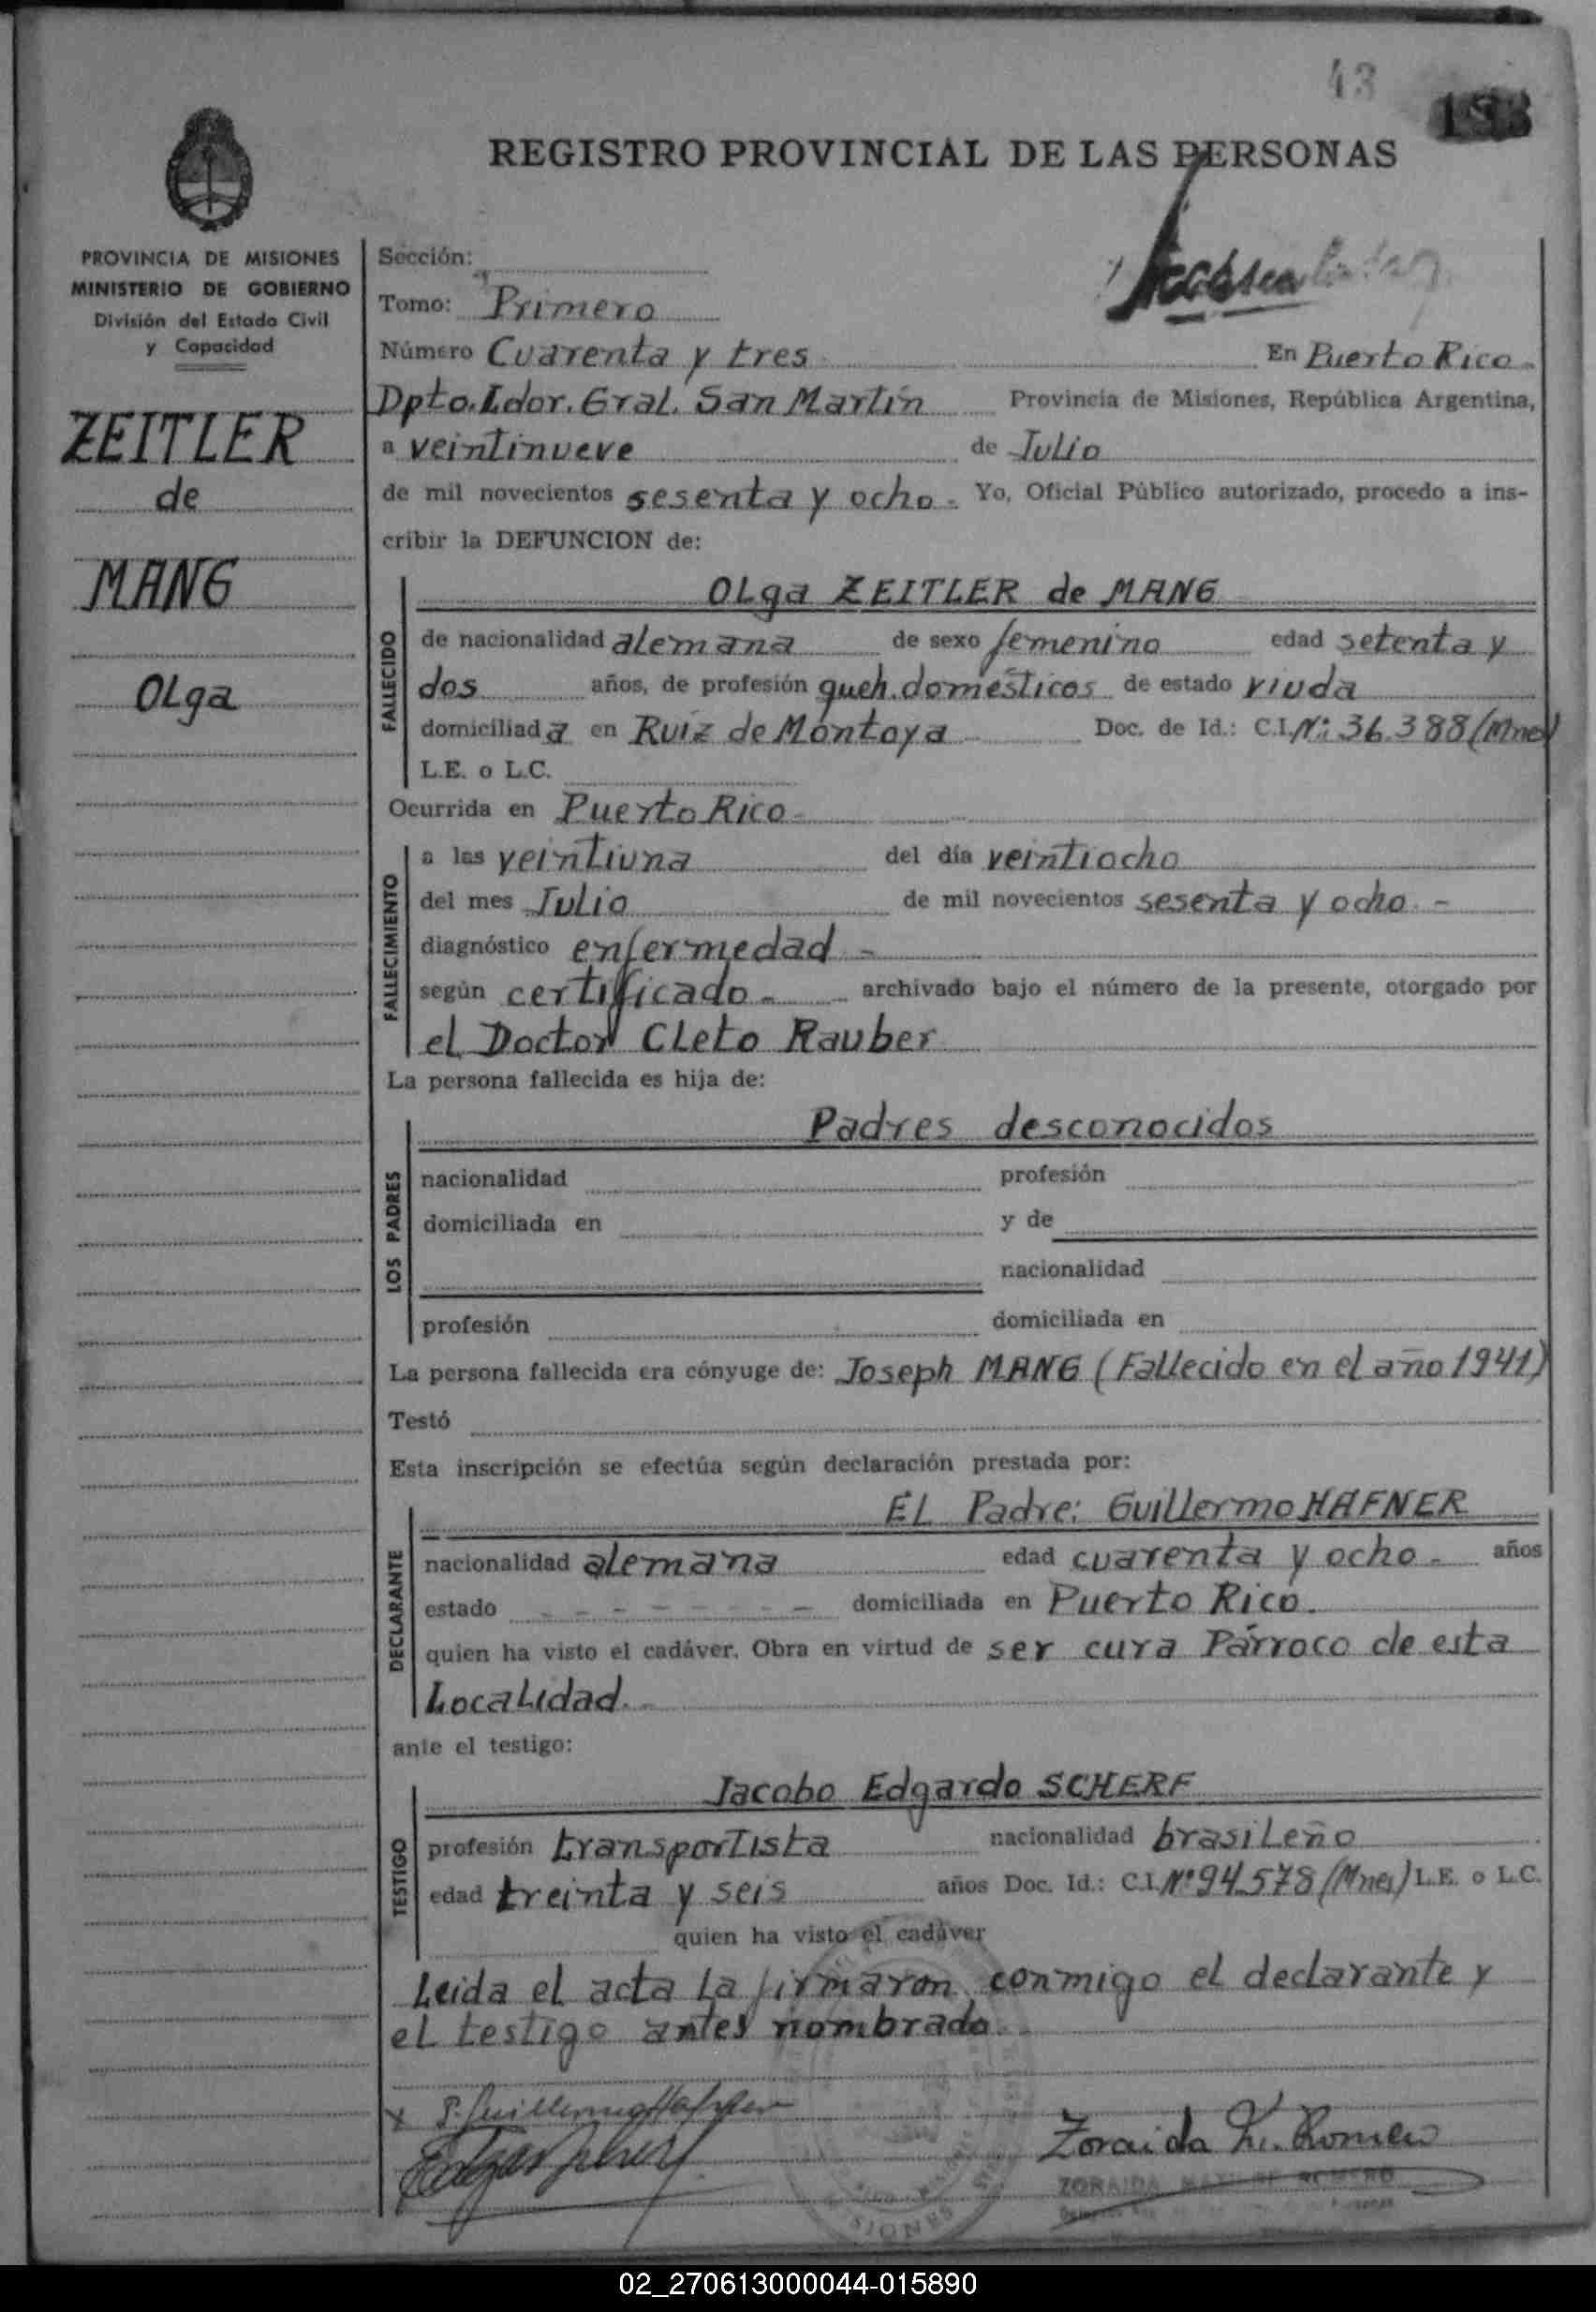 43
REGISTRO PROVINCIAL DE LAS PERSONAS
PROVINCIA DE MISIONES
MINISTERIO DE GOBIERNO
División del Estado Civil
y Capacidad
ZEITLER
de
MANG
Olga
Sección:
Tomo: Primero
Número Cuarenta y tres En Puerto Rico -
Dpto. Ldor. Gral. San Martín Provincia de Misiones, República Argentina,
a veintinueve de Julio
de mil novecientos sesenta y ocho - Yo, Oficial Público autorizado, procedo a ins-
cribir la DEFUNCION de:
FALLECIDO
Olga ZEITLER de MANG
de nacionalidad alemana de sexo femenino edad setenta y
dos años, de profesión queh. domésticos de estado viuda
domiciliada en Ruiz de Montoya - Doc. de Id.: C.I. Nº: 36.388 (Mnes)
L.E. o L.C.
Ocurrida en Puerto Rico -
FALLECIMIENTO
a las veintiuna del día veintiocho
del mes Julio de mil novecientos sesenta y ocho -
diagnóstico enfermedad -
según certificado - archivado bajo el número de la presente, otorgado por
el Doctor Cleto Rauber
La persona fallecida es hija de:
LOS PADRES
Padres desconocidos
nacionalidad profesión
domiciliada en y de
nacionalidad
profesión domiciliada en
La persona fallecida era cónyuge de: Joseph MANG (Fallecido en el año 1941)
Testó
Esta inscripción se efectúa según declaración prestada por:
DECLARANTE
EL Padre: Guillermo HAFNER
nacionalidad alemana edad cuarenta y ocho - años
estado - - - - - - - - domiciliada en Puerto Rico.
quien ha visto el cadáver. Obra en virtud de ser cura Párroco de esta
Localidad. -
ante el testigo:
TESTIGO
Jacobo Edgardo SCHERF
profesión transportista nacionalidad brasileño
edad treinta y seis años Doc. Id.: C.I. Nº 94.578 (Mnes) L.E. o L.C.
quien ha visto el cadáver
Leida el acta la firmaron conmigo el declarante y
el testigo antes nombrado.
x P. Guillermo Hafner
Zoraida M. Romero
ZORAIDA ROMERO
MISIONES
02_270613000044-015890